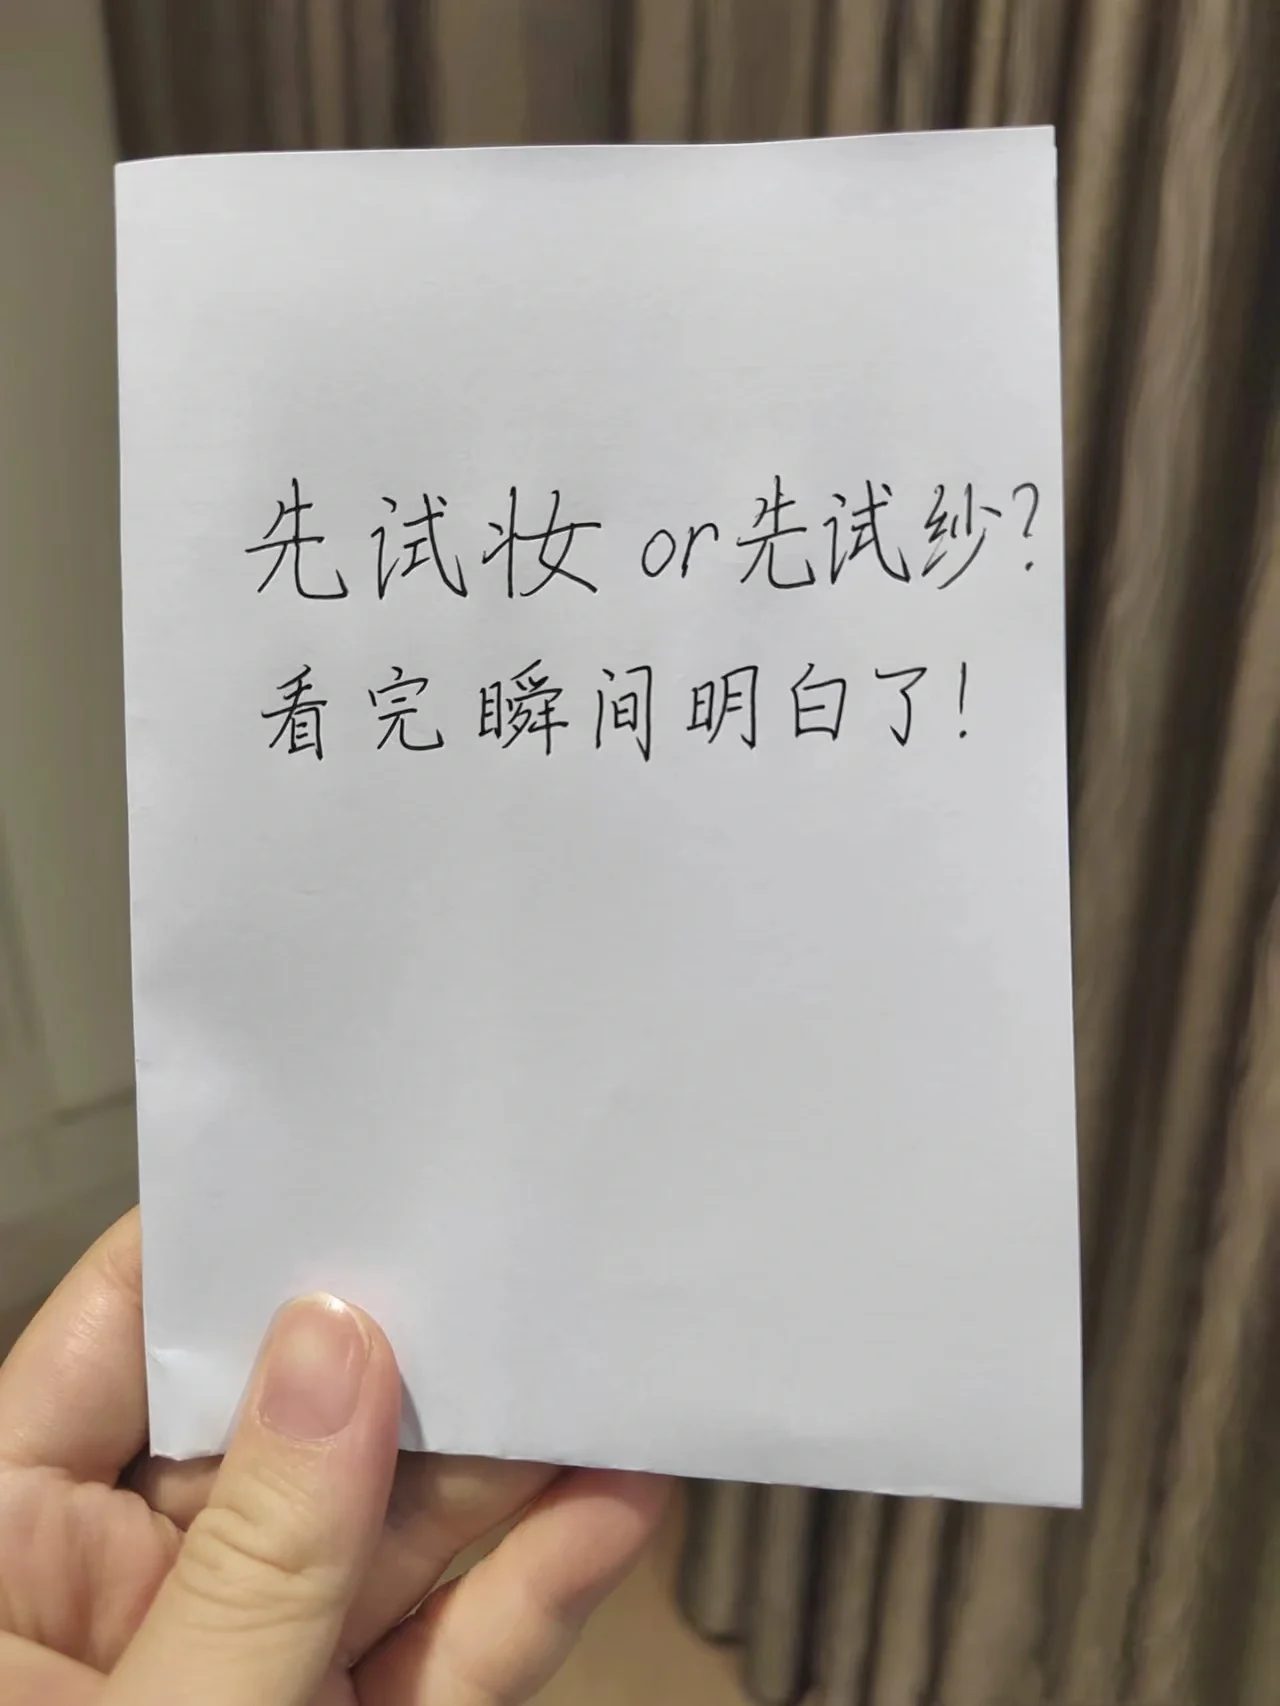 先试妆or先试纱?
看完瞬间明白了!